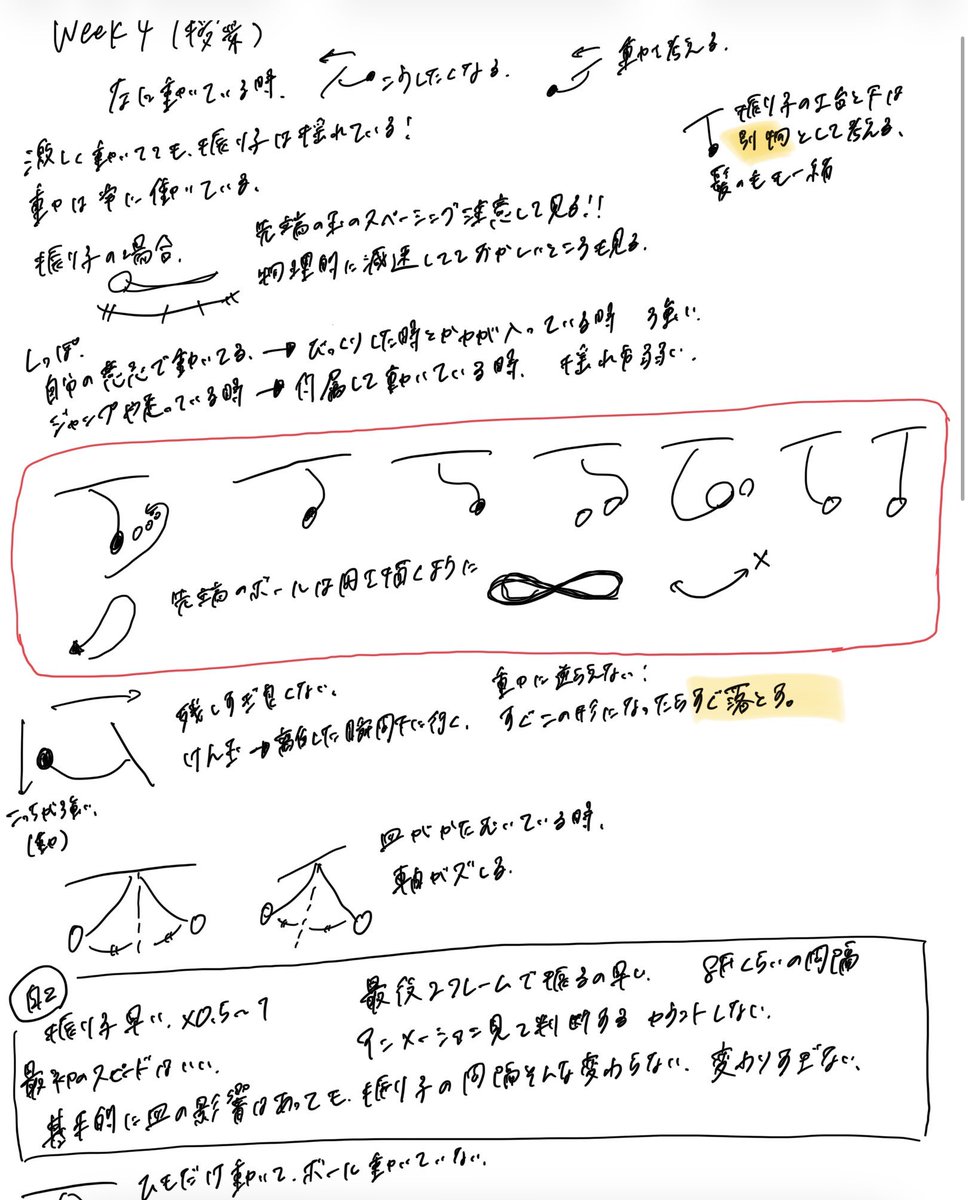 Week 4 (授業)
左に動いている時、 こうしたくなる。 重力で考える。
振り子の上台と下は
別物として考える。
髪の毛も一緒
激しく動いてても、振り子は揺れている！
重力は常に働いている。
振り子の場合、
先端の玉のスペーシング注意して見る!!
物理的に減速しておかしいところも見る。
しっぽ。
自分の意志で動いてる。→ びっくりした時とか力が入っている時 強い。
ジャンプや走っている時 → 付属して動いている時、 揺れも弱い。
先端のボールは円を描くように
X
残しすぎ良くない。
けん玉 → 離した瞬間下に行く。
重力に逆らえない！
すぐこの形になったらすぐ落とす。
こっちが強い。
(重力)
皿がかたむいている時、
軸がズレる。
振り子早い、×0.5〜1
最後2フレームで振るの早い。
8Fくらいの間隔
最初のスピードはいい。
アニメーション見て判断する カウントしない。
基本的に皿の影響はあっても、振り子の間隔そんな変わらない、変わりすぎない。
ひもだけ動いて、ボール動いていない。